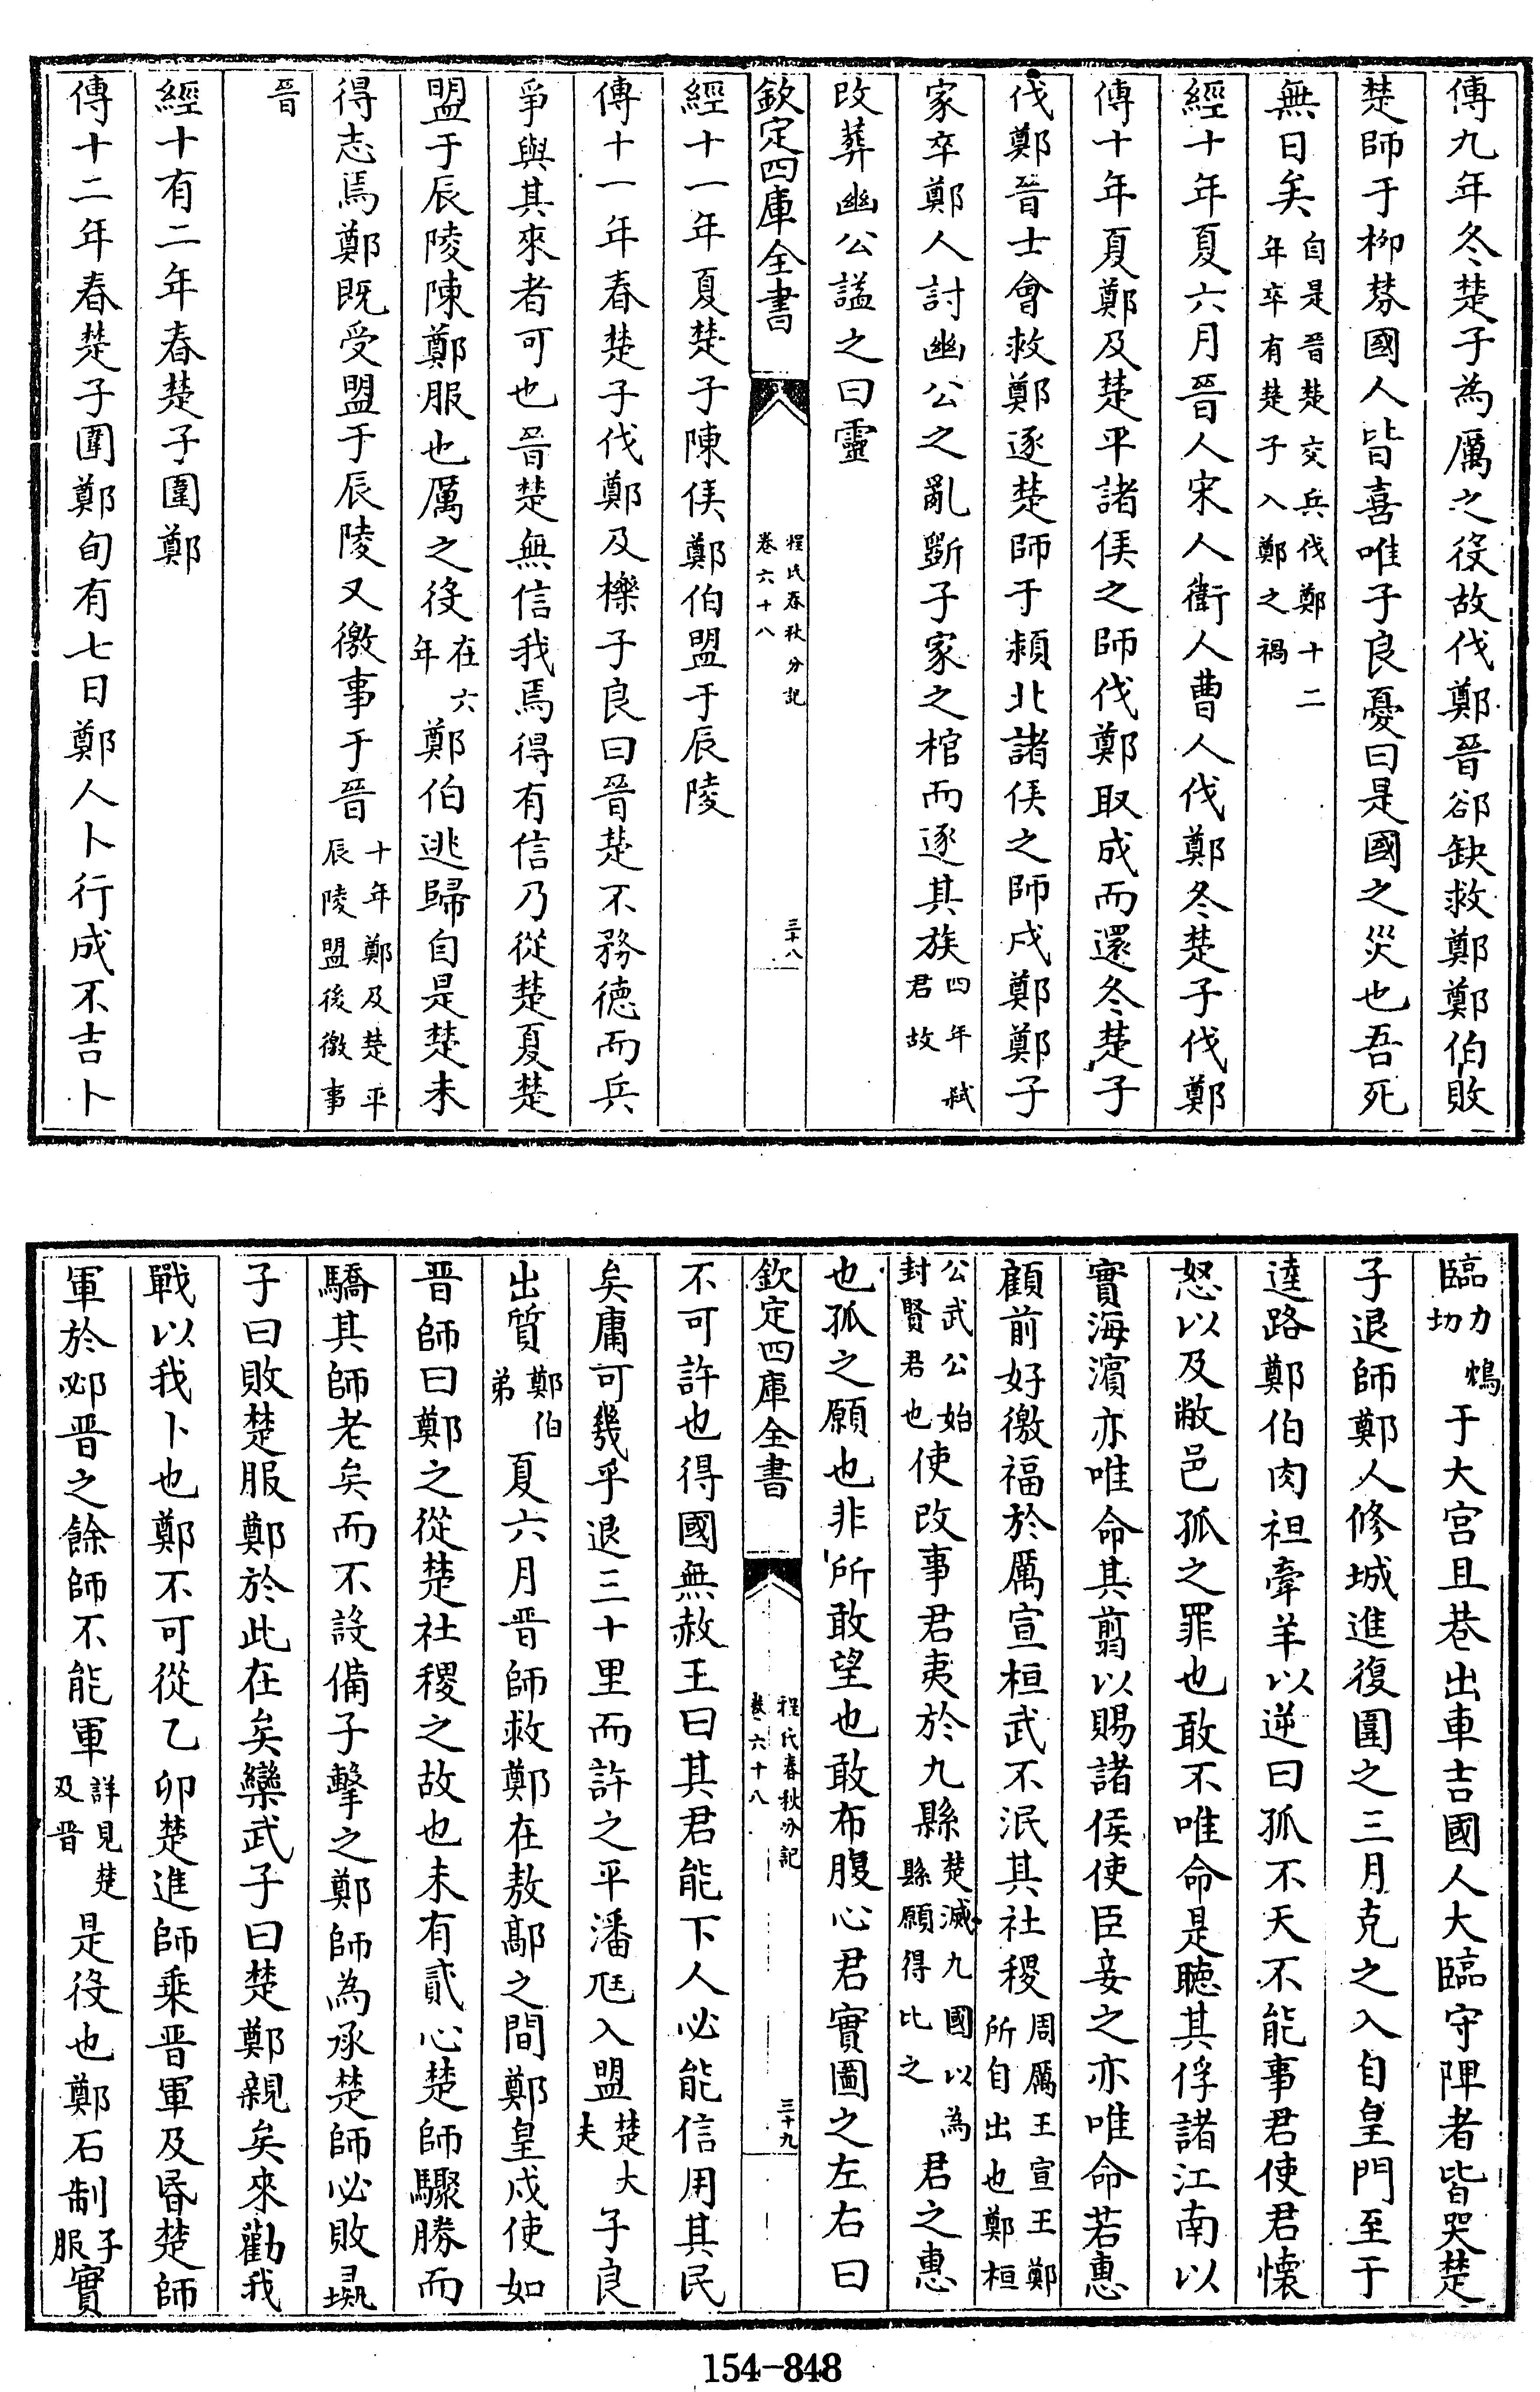 傳九年冬楚子為厲之役故伐鄭晉郤缺救鄭鄭伯敗
楚師于柳棼國人皆喜唯子良憂曰是國之災也吾死
無日矣自是晉楚交兵伐鄭十二年卒有楚子入鄭之禍
經十年夏六月晉人宋人衛人曹人伐鄭冬楚子伐鄭
傳十年夏鄭及楚平諸侯之師伐鄭取成而還冬楚子
伐鄭晉士會救鄭逐楚師于潁北諸侯之師戍鄭鄭子
家卒鄭人討幽公之亂斲子家之棺而逐其族四年弒君故
改葬幽公諡之曰靈
欽定四庫全書
程氏春秋分記
卷六十八
三十八
經十一年夏楚子陳侯鄭伯盟于辰陵
傳十一年春楚子伐鄭及櫟子良曰晉楚不務德而兵
爭與其來者可也晉楚無信我焉得有信乃從楚夏楚
盟于辰陵陳鄭服也厲之役在六年鄭伯逃歸自是楚未
得志焉鄭既受盟于辰陵又徼事于晉十年鄭及楚平辰陵盟後徼事
晉
經十有二年春楚子圍鄭
傳十二年春楚子圍鄭旬有七日鄭人卜行成不吉卜
臨力鴆切于大宮且巷出車吉國人大臨守陴者皆哭楚
子退師鄭人修城進復圍之三月克之入自皇門至于
逵路鄭伯肉袒牽羊以逆曰孤不天不能事君使君懷
怒以及敝邑孤之罪也敢不唯命是聽其俘諸江南以
實海濱亦唯命其翦以賜諸侯使臣妾之亦唯命若惠
顧前好徼福於厲宣桓武不泯其社稷周厲王宣王鄭所自出也鄭桓
公武公始封賢君也使改事君夷於九縣楚滅九國以為縣願得比之君之惠
也孤之願也非所敢望也敢布腹心君實圖之左右曰
欽定四庫全書
程氏春秋分記
卷六十八
三十九
不可許也得國無赦王曰其君能下人必能信用其民
矣庸可幾乎退三十里而許之平潘尫入盟楚大夫子良
出質鄭伯弟夏六月晉師救鄭在敖鄗之間鄭皇戌使如
晉師曰鄭之從楚社稷之故也未有貳心楚師驟勝而
驕其師老矣而不設備子擊之鄭師為承楚師必敗彘
子曰敗楚服鄭於此在矣欒武子曰楚鄭親矣來勸我
戰以我卜也鄭不可從乙卯楚進師乘晉軍及昬楚師
軍於邲晉之餘師不能軍詳見楚及晉是役也鄭石制子服實
154-848